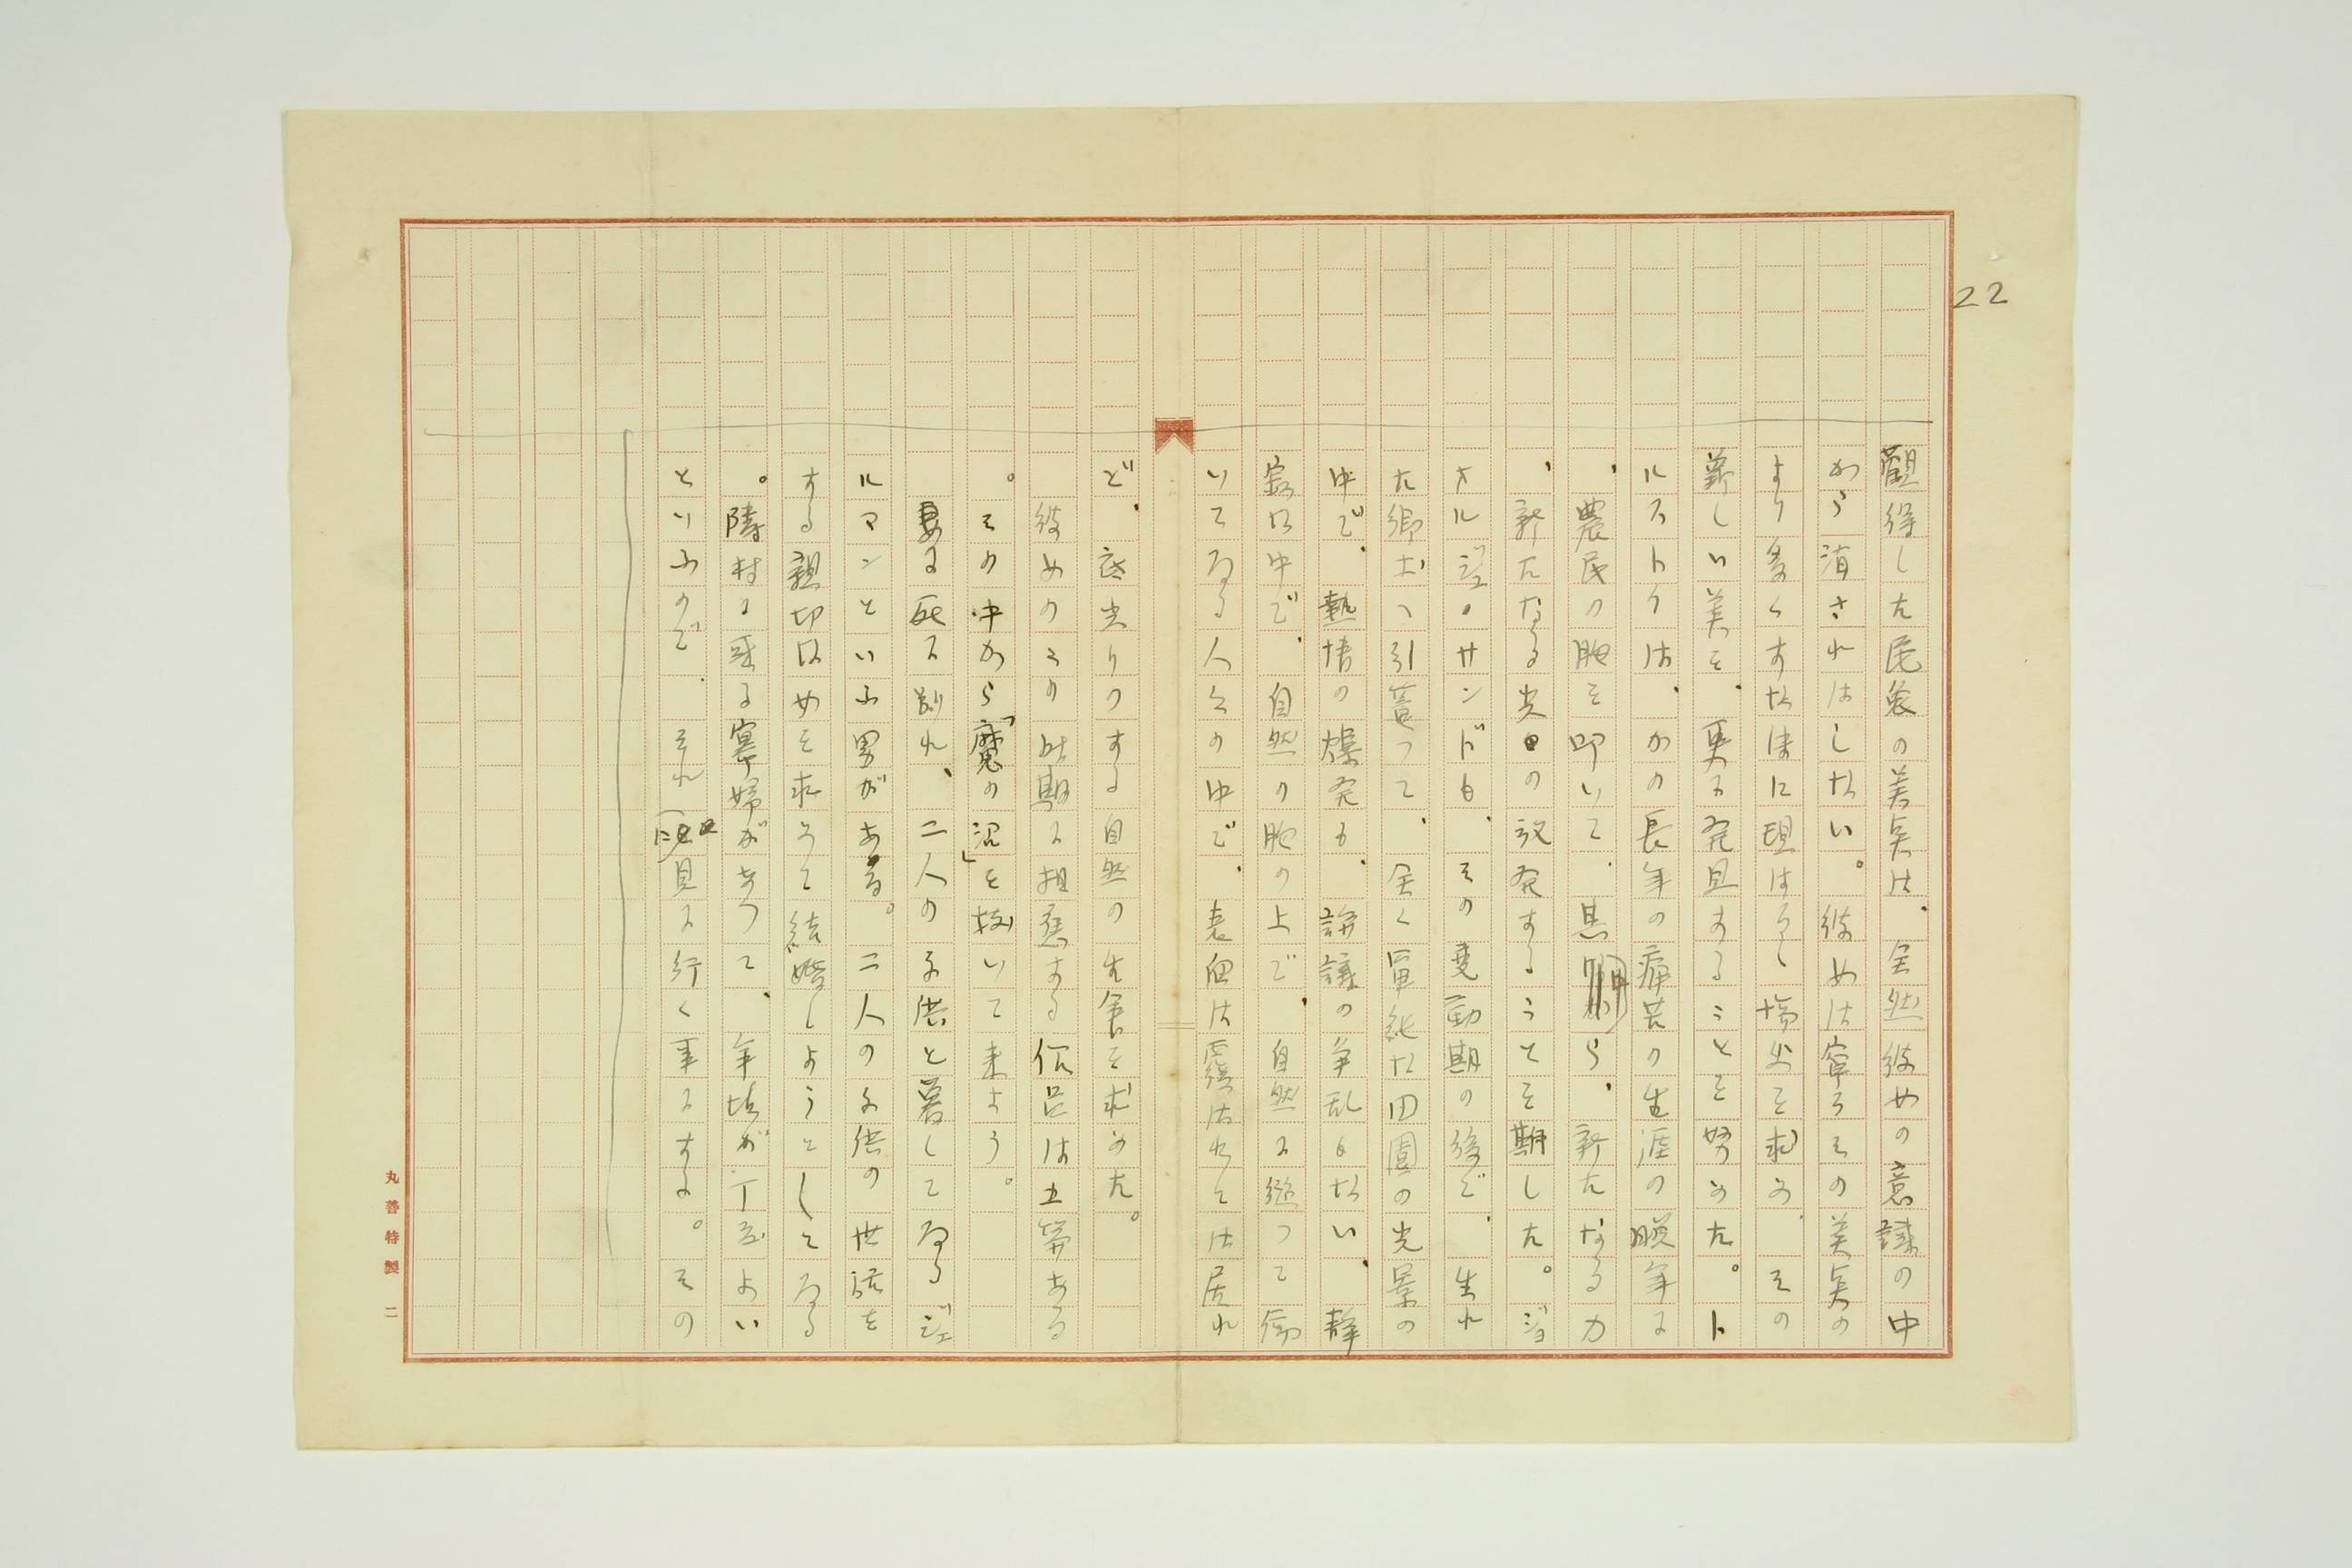 22
觀得した民衆の美点は、全然彼女の意識の中
から消されはしない。彼女は寧ろその美点の
より多くすなほに現はるゝ場少を求め、その
新しい美を、更に発見することを努めた。ト
ルストイは、かの長年の痛苦の生涯の晩年に
、農民の胸を叩いて、其処から、新たなる力
、新たなる光の放発することを期した。ジョ
オルジュ・サンドも、その変動期の後で、生れ
た郷土へ引篭つて、全く單純な田園の光景の
中で、熱情の爆発も、論議の争乱もない、静
寂な中で、自然の胸の上で、自然に縋つて働
いてゐる人々の中で、表面は露はれては居れ
ど、底光りのする自然の生命を求めた。
彼女のこの時期に相應する作品は五篇ある
。その中から「魔の沼」を抜いて来よう。
妻に死に別れ、二人の子供と暮してゐるジェ
ルマンといふ男がある。二人の子供の世話を
する親切な女を求めて結婚しようとしてゐる
。隣村に或る寡婦があつて、年頃が丁度よい
といふので、それを見に行く事にする。その
丸善特製 二